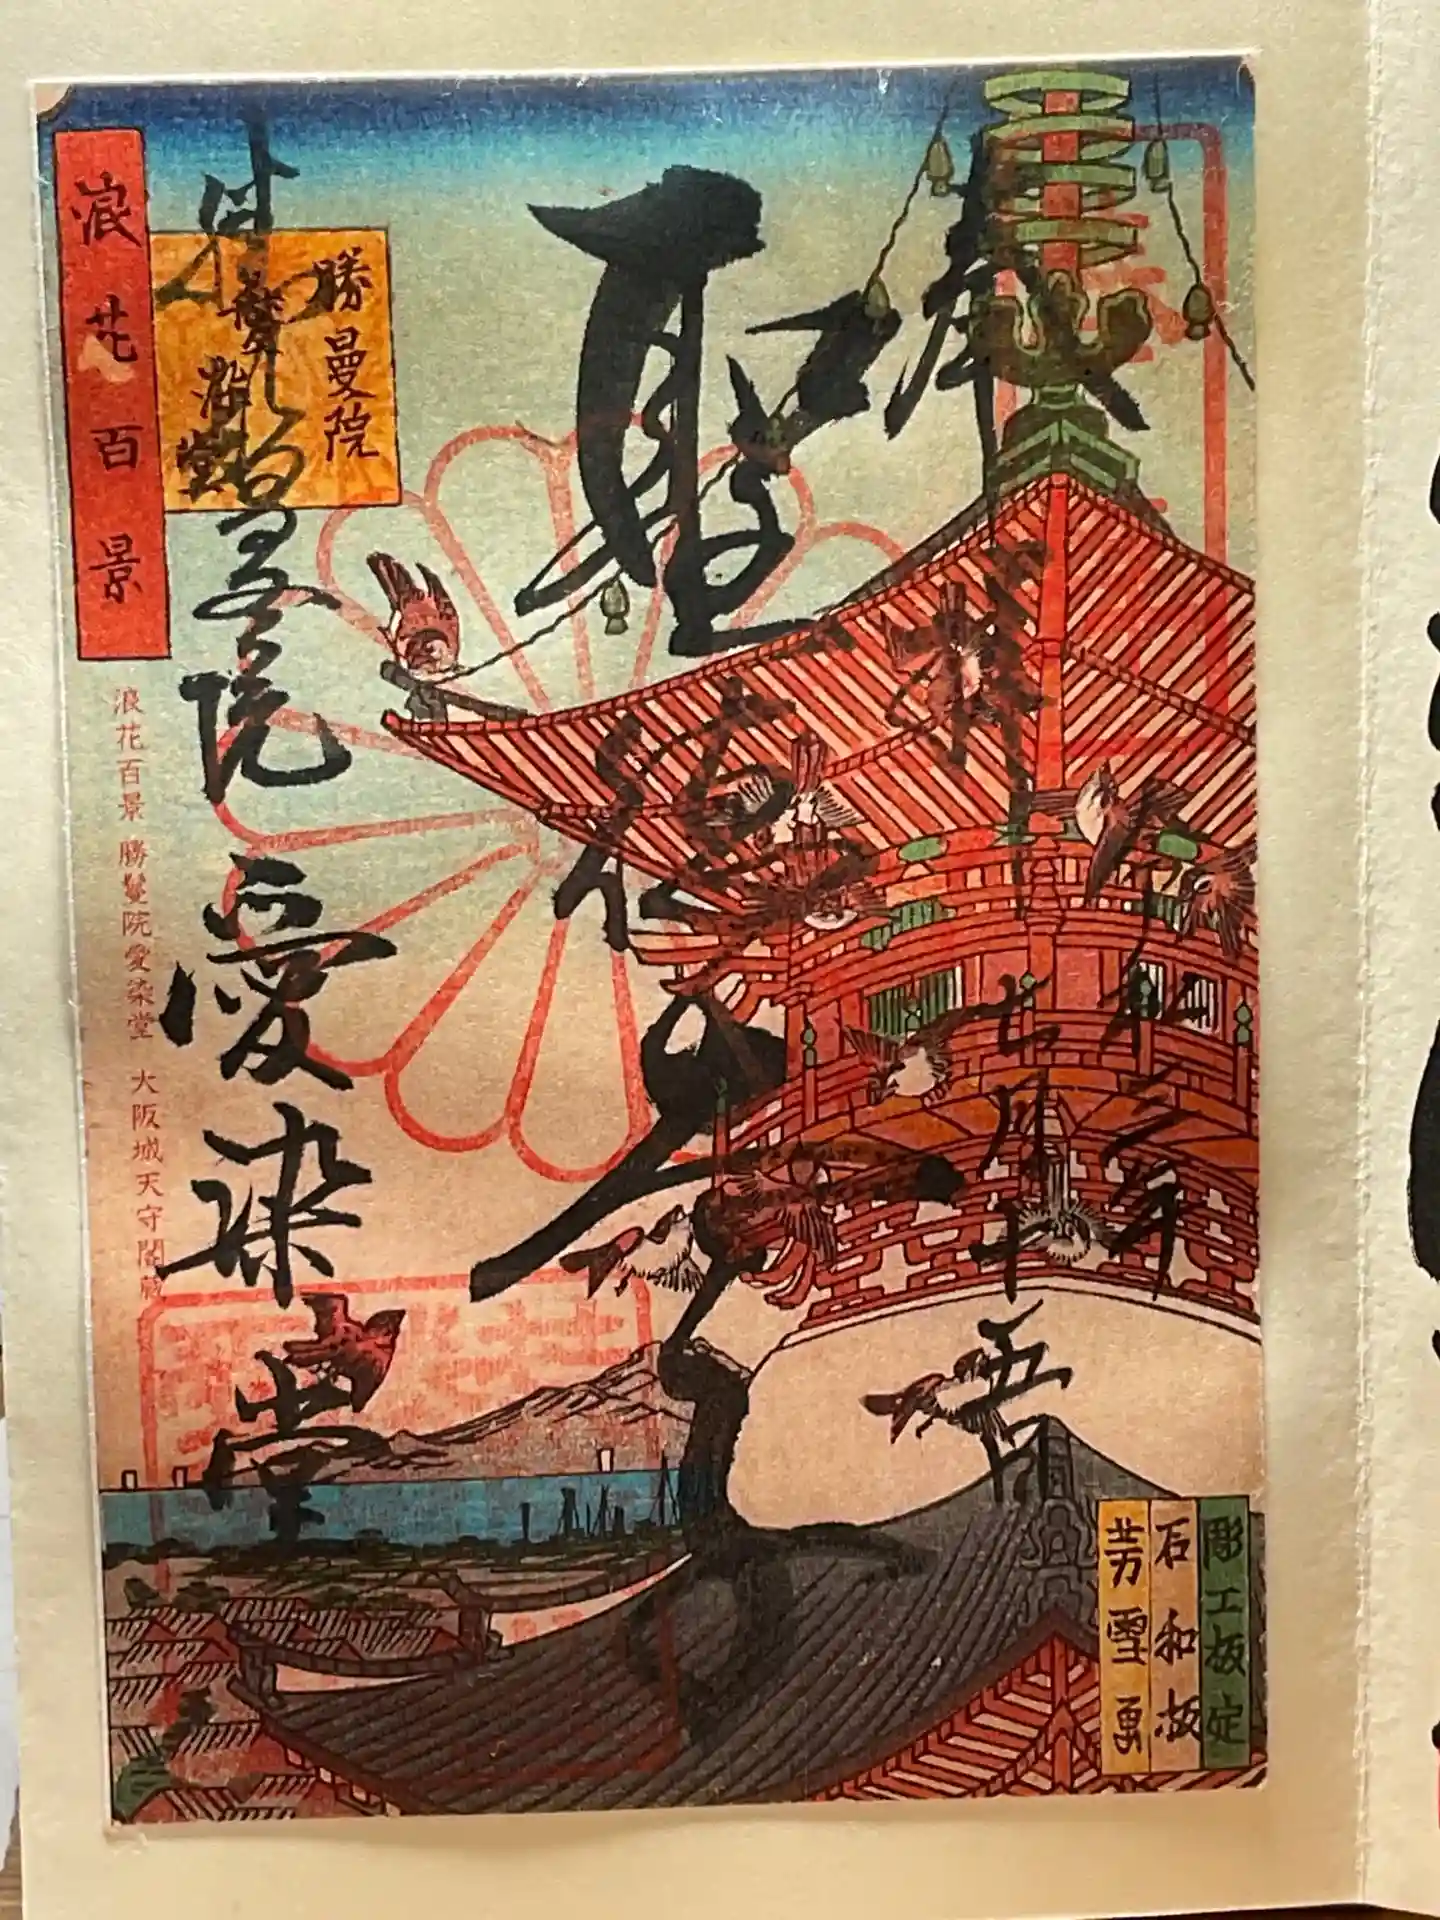 奉拝
令和三年
七月十五日
聖徳太子
勝曼院
浪花百景
勝鬘院愛染堂
浪花百景 勝鬘院愛染堂 大阪城天守閣蔵
彫工板定
石和板
芳雪画